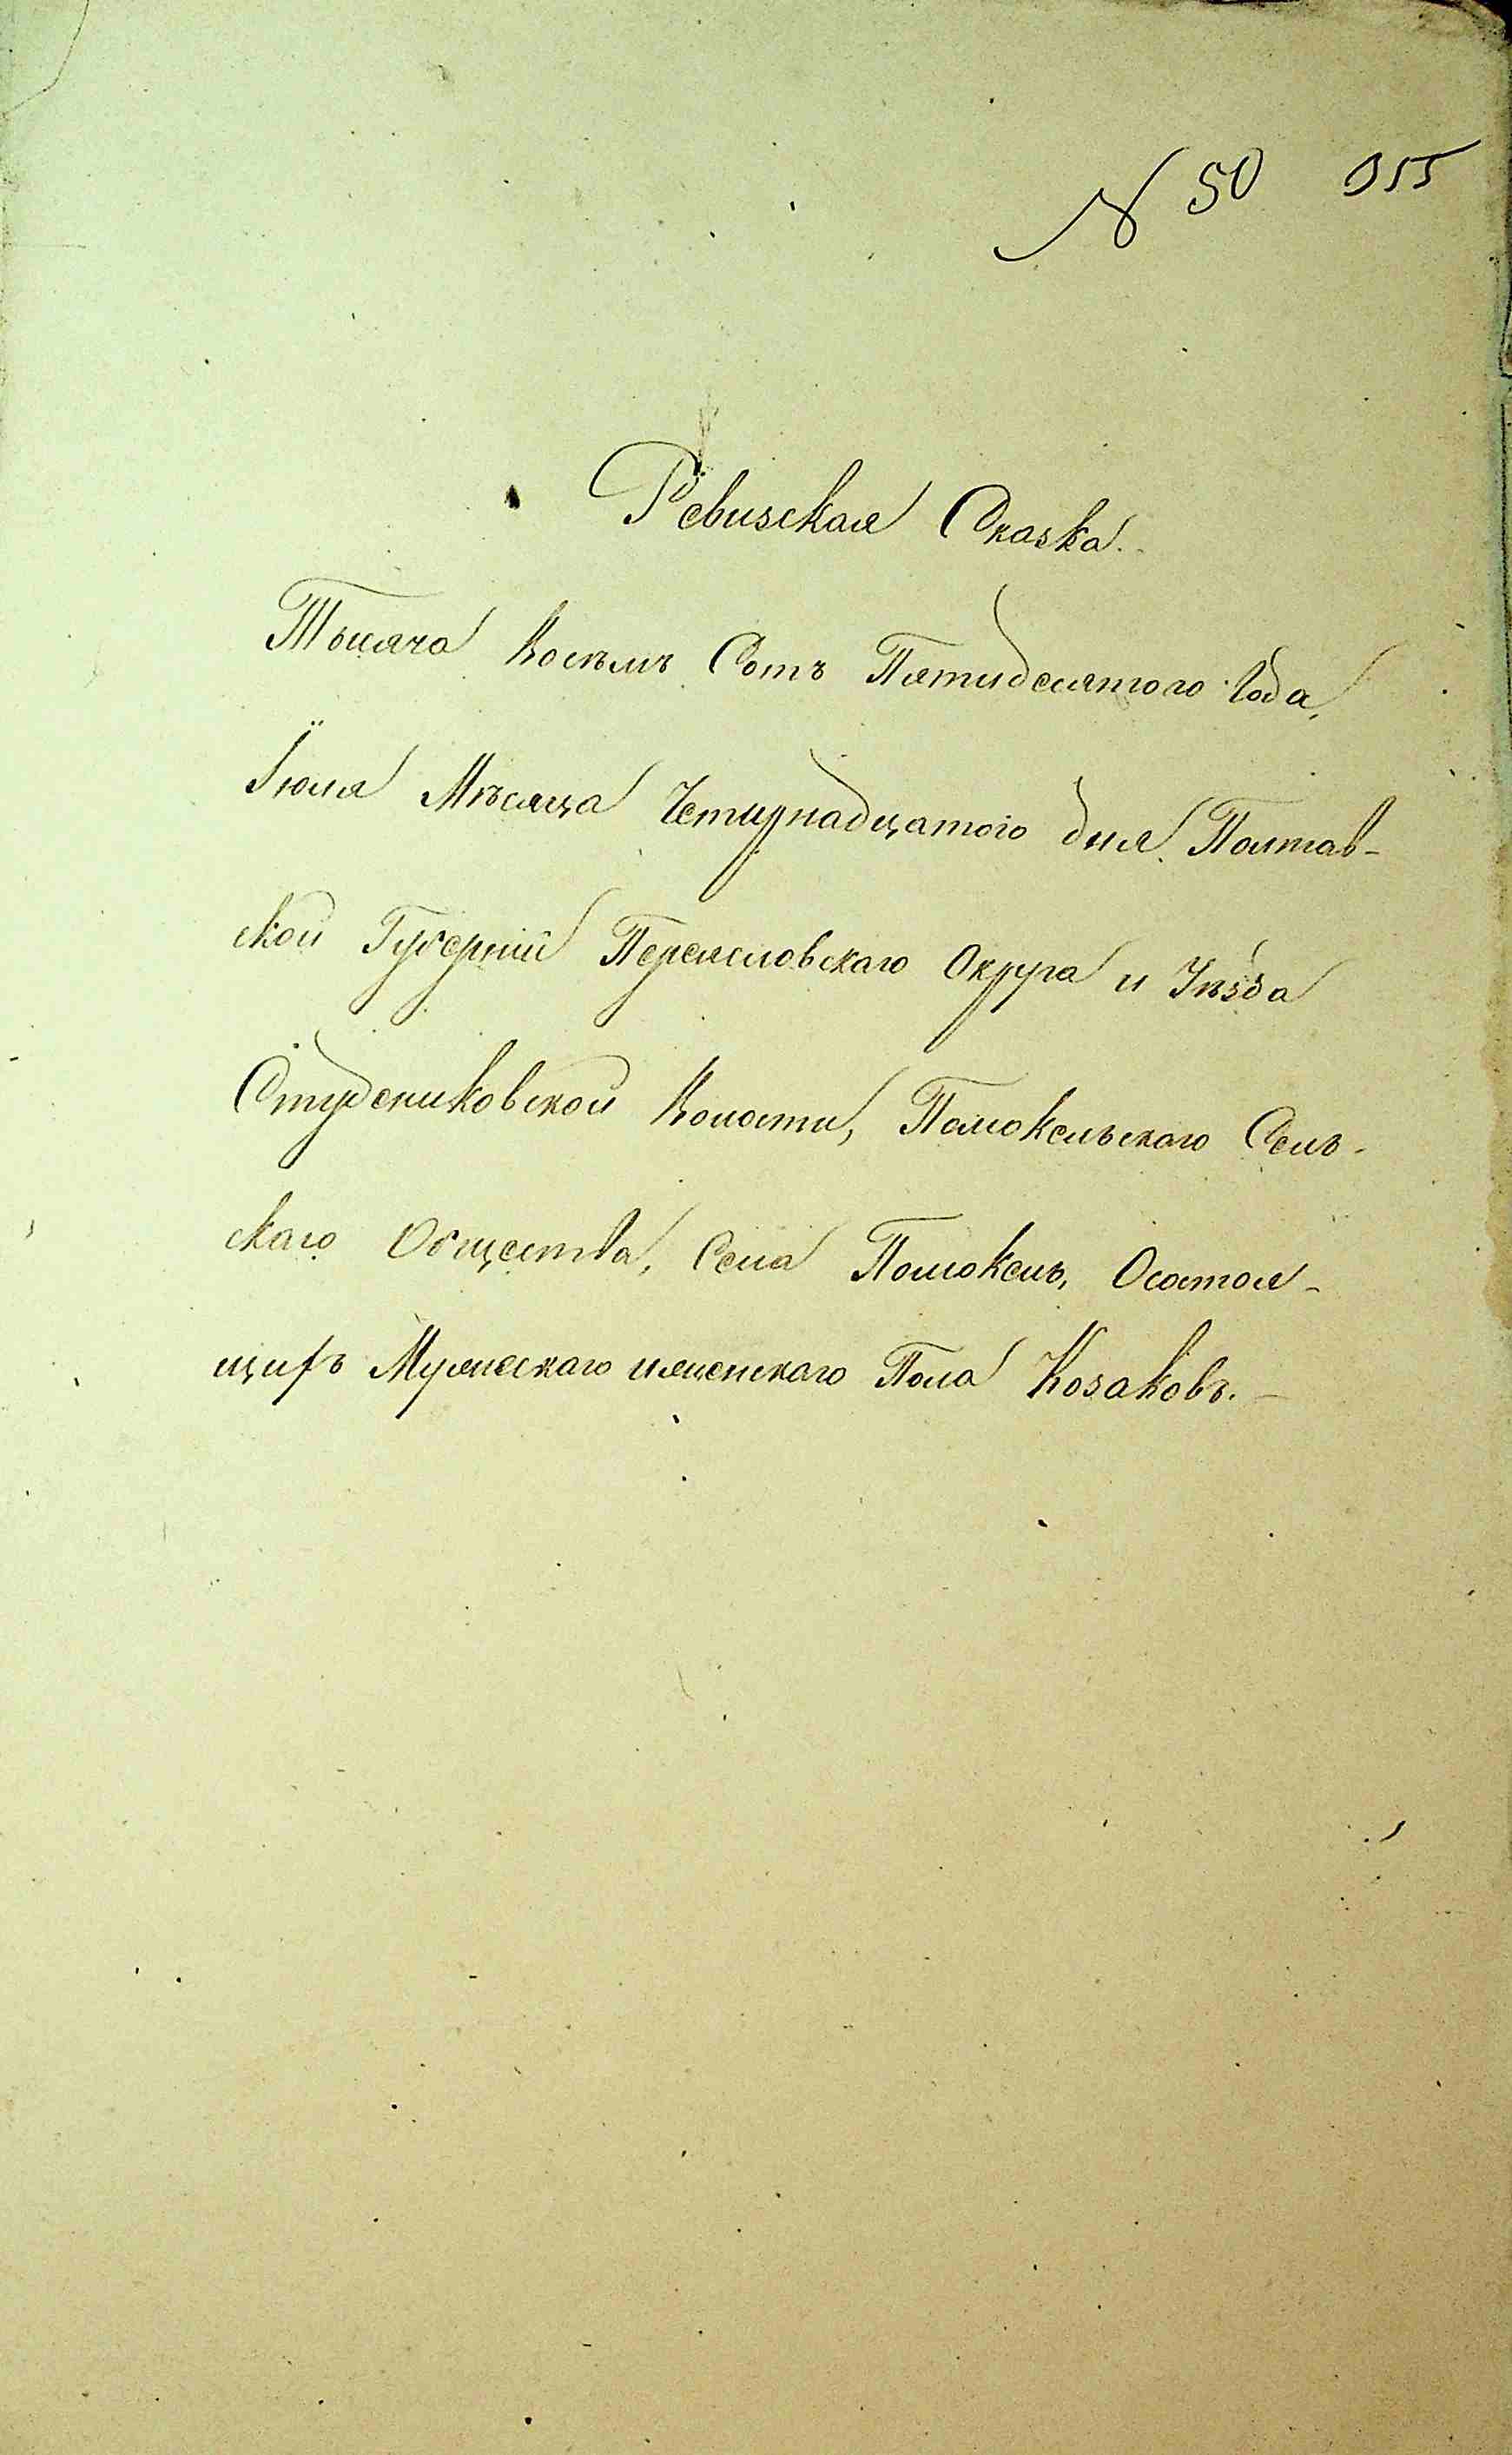 N 50 955
Ревизская Сказка.
Тысяча Восемь Сотъ Пятидесятого Года,
Іюля Мѣсяца Четырнадцатого дня. Полтав-
ской Губерніи Переяславскаго Округа и Уѣзда
Студениковской Волости, Помокельскаго Сель-
скаго Общества, Села Помокель, Осостоя-
щихъ Мужескаго и женскаго Пола Козаковъ.